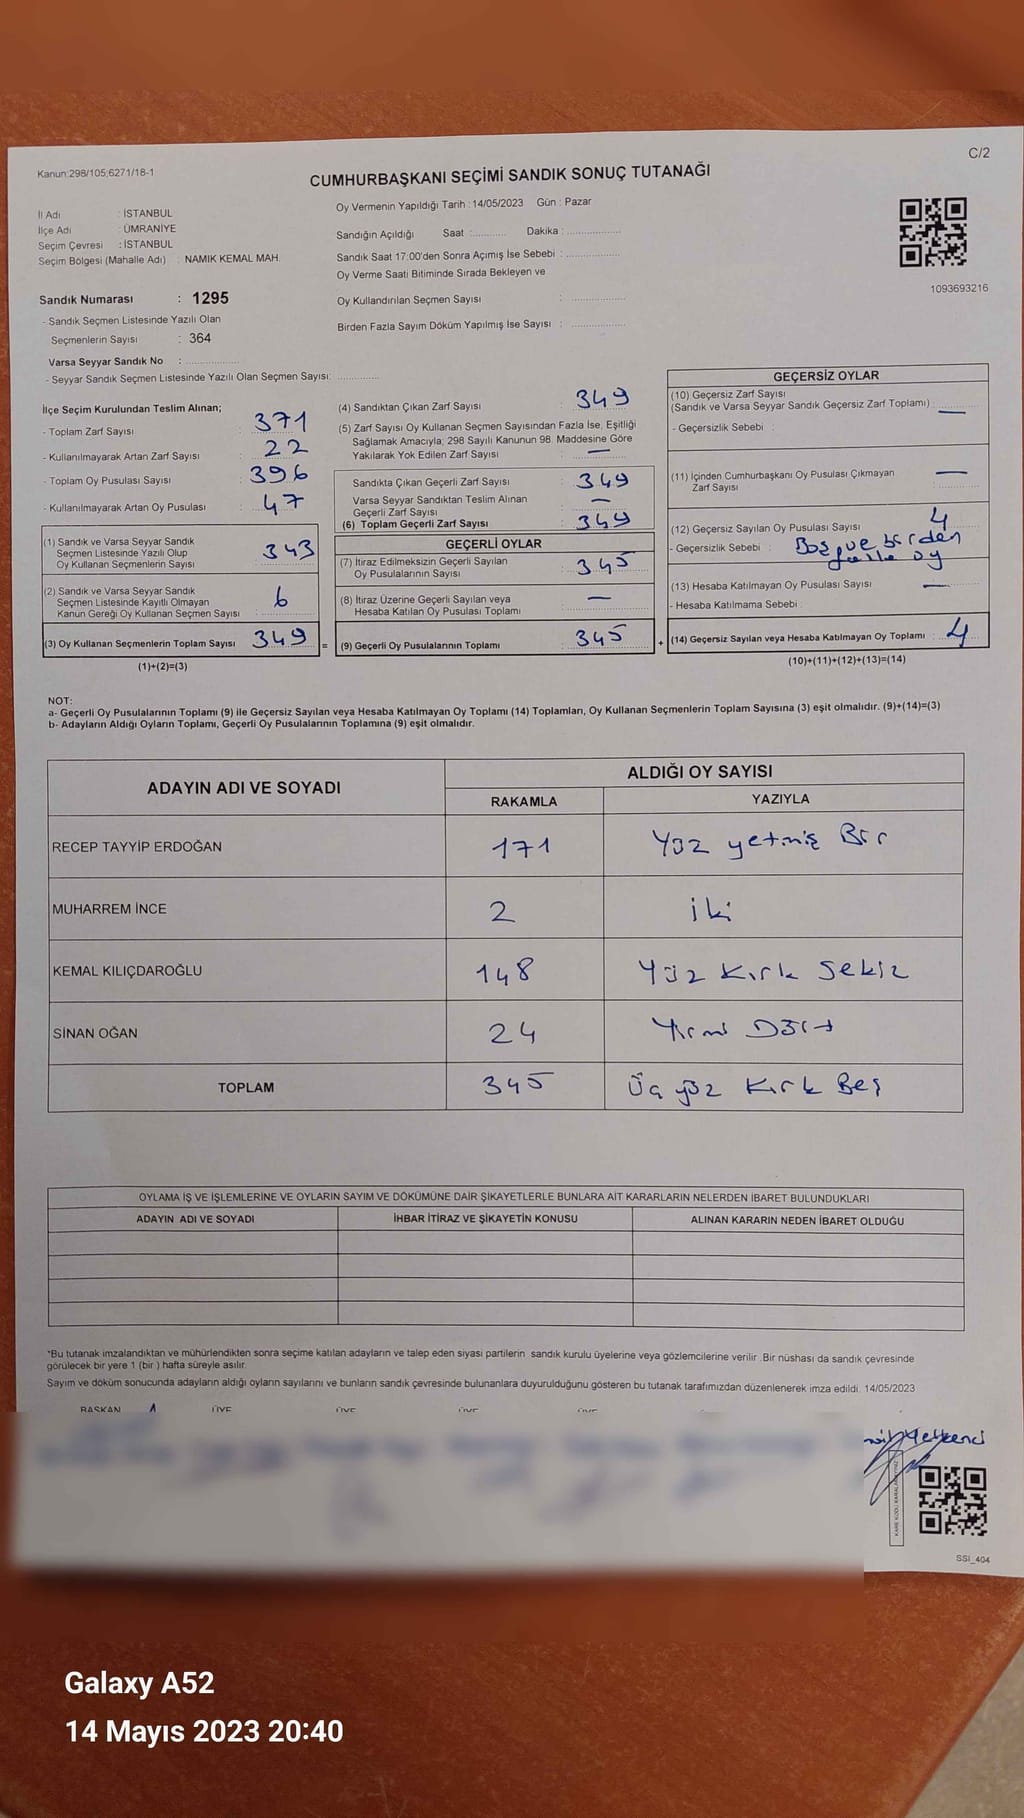 Kanun:298/105;6271/18-1
C/2
CUMHURBAŞKANI SEÇİMİ SANDIK SONUÇ TUTANAĞI
İl Adı : İSTANBUL
İlçe Adı : ÜMRANİYE
Seçim Çevresi : İSTANBUL
Seçim Bölgesi (Mahalle Adı) : NAMIK KEMAL MAH.
Sandık Numarası : 1295
- Sandık Seçmen Listesinde Yazılı Olan
Seçmenlerin Sayısı : 364
Varsa Seyyar Sandık No : ..................
- Seyyar Sandık Seçmen Listesinde Yazılı Olan Seçmen Sayısı: ..............
Oy Vermenin Yapıldığı Tarih : 14/05/2023 Gün : Pazar
Sandığın Açıldığı Saat :........... Dakika : ..................
Sandık Saat 17:00'den Sonra Açımış İse Sebebi : ..................
Oy Verme Saati Bitiminde Sırada Bekleyen ve
Oy Kullandırılan Seçmen Sayısı : ..................
Birden Fazla Sayım Döküm Yapılmış İse Sayısı : ..................
1093693216
İlçe Seçim Kurulundan Teslim Alınan;
- Toplam Zarf Sayısı : 371
- Kullanılmayarak Artan Zarf Sayısı : 22
- Toplam Oy Pusulası Sayısı : 396
- Kullanılmayarak Artan Oy Pusulası : 47
(1) Sandık ve Varsa Seyyar Sandık
Seçmen Listesinde Yazılı Olup
Oy Kullanan Seçmenlerin Sayısı : 343
(2) Sandık ve Varsa Seyyar Sandık
Seçmen Listesinde Kayıtlı Olmayan
Kanun Gereği Oy Kullanan Seçmen Sayısı : 6
(3) Oy Kullanan Seçmenlerin Toplam Sayısı : 349 =
(1)+(2)=(3)
(4) Sandıktan Çıkan Zarf Sayısı : 349
(5) Zarf Sayısı Oy Kullanan Seçmen Sayısından Fazla İse, Eşitliği
Sağlamak Amacıyla; 298 Sayılı Kanunun 98. Maddesine Göre
Yakılarak Yok Edilen Zarf Sayısı : —
Sandıkta Çıkan Geçerli Zarf Sayısı : 349
Varsa Seyyar Sandıktan Teslim Alınan
Geçerli Zarf Sayısı : —
(6) Toplam Geçerli Zarf Sayısı : 349
GEÇERLİ OYLAR
(7) İtiraz Edilmeksizin Geçerli Sayılan
Oy Pusulalarının Sayısı : 345
(8) İtiraz Üzerine Geçerli Sayılan veya
Hesaba Katılan Oy Pusulası Toplamı : —
(9) Geçerli Oy Pusulalarının Toplamı : 345 +
GEÇERSİZ OYLAR
(10) Geçersiz Zarf Sayısı
(Sandık ve Varsa Seyyar Sandık Geçersiz Zarf Toplamı) : —
- Geçersizlik Sebebi :
(11) İçinden Cumhurbaşkanı Oy Pusulası Çıkmayan
Zarf Sayısı —
(12) Geçersiz Sayılan Oy Pusulası Sayısı : 4
- Geçersizlik Sebebi : Boş ve birden
fazla oy
(13) Hesaba Katılmayan Oy Pusulası Sayısı : —
- Hesaba Katılmama Sebebi :
(14) Geçersiz Sayılan veya Hesaba Katılmayan Oy Toplamı : 4
(10)+(11)+(12)+(13)=(14)
NOT:
a- Geçerli Oy Pusulalarının Toplamı (9) ile Geçersiz Sayılan veya Hesaba Katılmayan Oy Toplamı (14) Toplamları, Oy Kullanan Seçmenlerin Toplam Sayısına (3) eşit olmalıdır. (9)+(14)=(3)
b- Adayların Aldığı Oyların Toplamı, Geçerli Oy Pusulalarının Toplamına (9) eşit olmalıdır.
ADAYIN ADI VE SOYADI ALDIĞI OY SAYISI
RAKAMLA YAZIYLA
RECEP TAYYİP ERDOĞAN 171 Yüz yetmiş Bir
MUHARREM İNCE 2 İki
KEMAL KILIÇDAROĞLU 148 Yüz Kırk Sekiz
SİNAN OĞAN 24 Yirmi Dört
TOPLAM 345 Üç yüz Kırk Beş
OYLAMA İŞ VE İŞLEMLERİNE VE OYLARIN SAYIM VE DÖKÜMÜNE DAİR ŞİKAYETLERLE BUNLARA AİT KARARLARIN NELERDEN İBARET BULUNDUKLARI
ADAYIN ADI VE SOYADI İHBAR İTİRAZ VE ŞİKAYETİN KONUSU ALINAN KARARIN NEDEN İBARET OLDUĞU
*Bu tutanak imzalandıktan ve mühürlendikten sonra seçime katılan adayların ve talep eden siyasi partilerin sandık kurulu üyelerine veya gözlemcilerine verilir .Bir nüshası da sandık çevresinde
görülecek bir yere 1 (bir ) hafta süreyle asılır.
Sayım ve döküm sonucunda adayların aldığı oyların sayılarını ve bunların sandık çevresinde bulunanlara duyurulduğunu gösteren bu tutanak tarafımızdan düzenlenerek imza edildi. 14/05/2023
BAŞKAN ÜYE ÜYE ÜYE ÜYE
SSI_404
Galaxy A52
14 Mayıs 2023 20:40